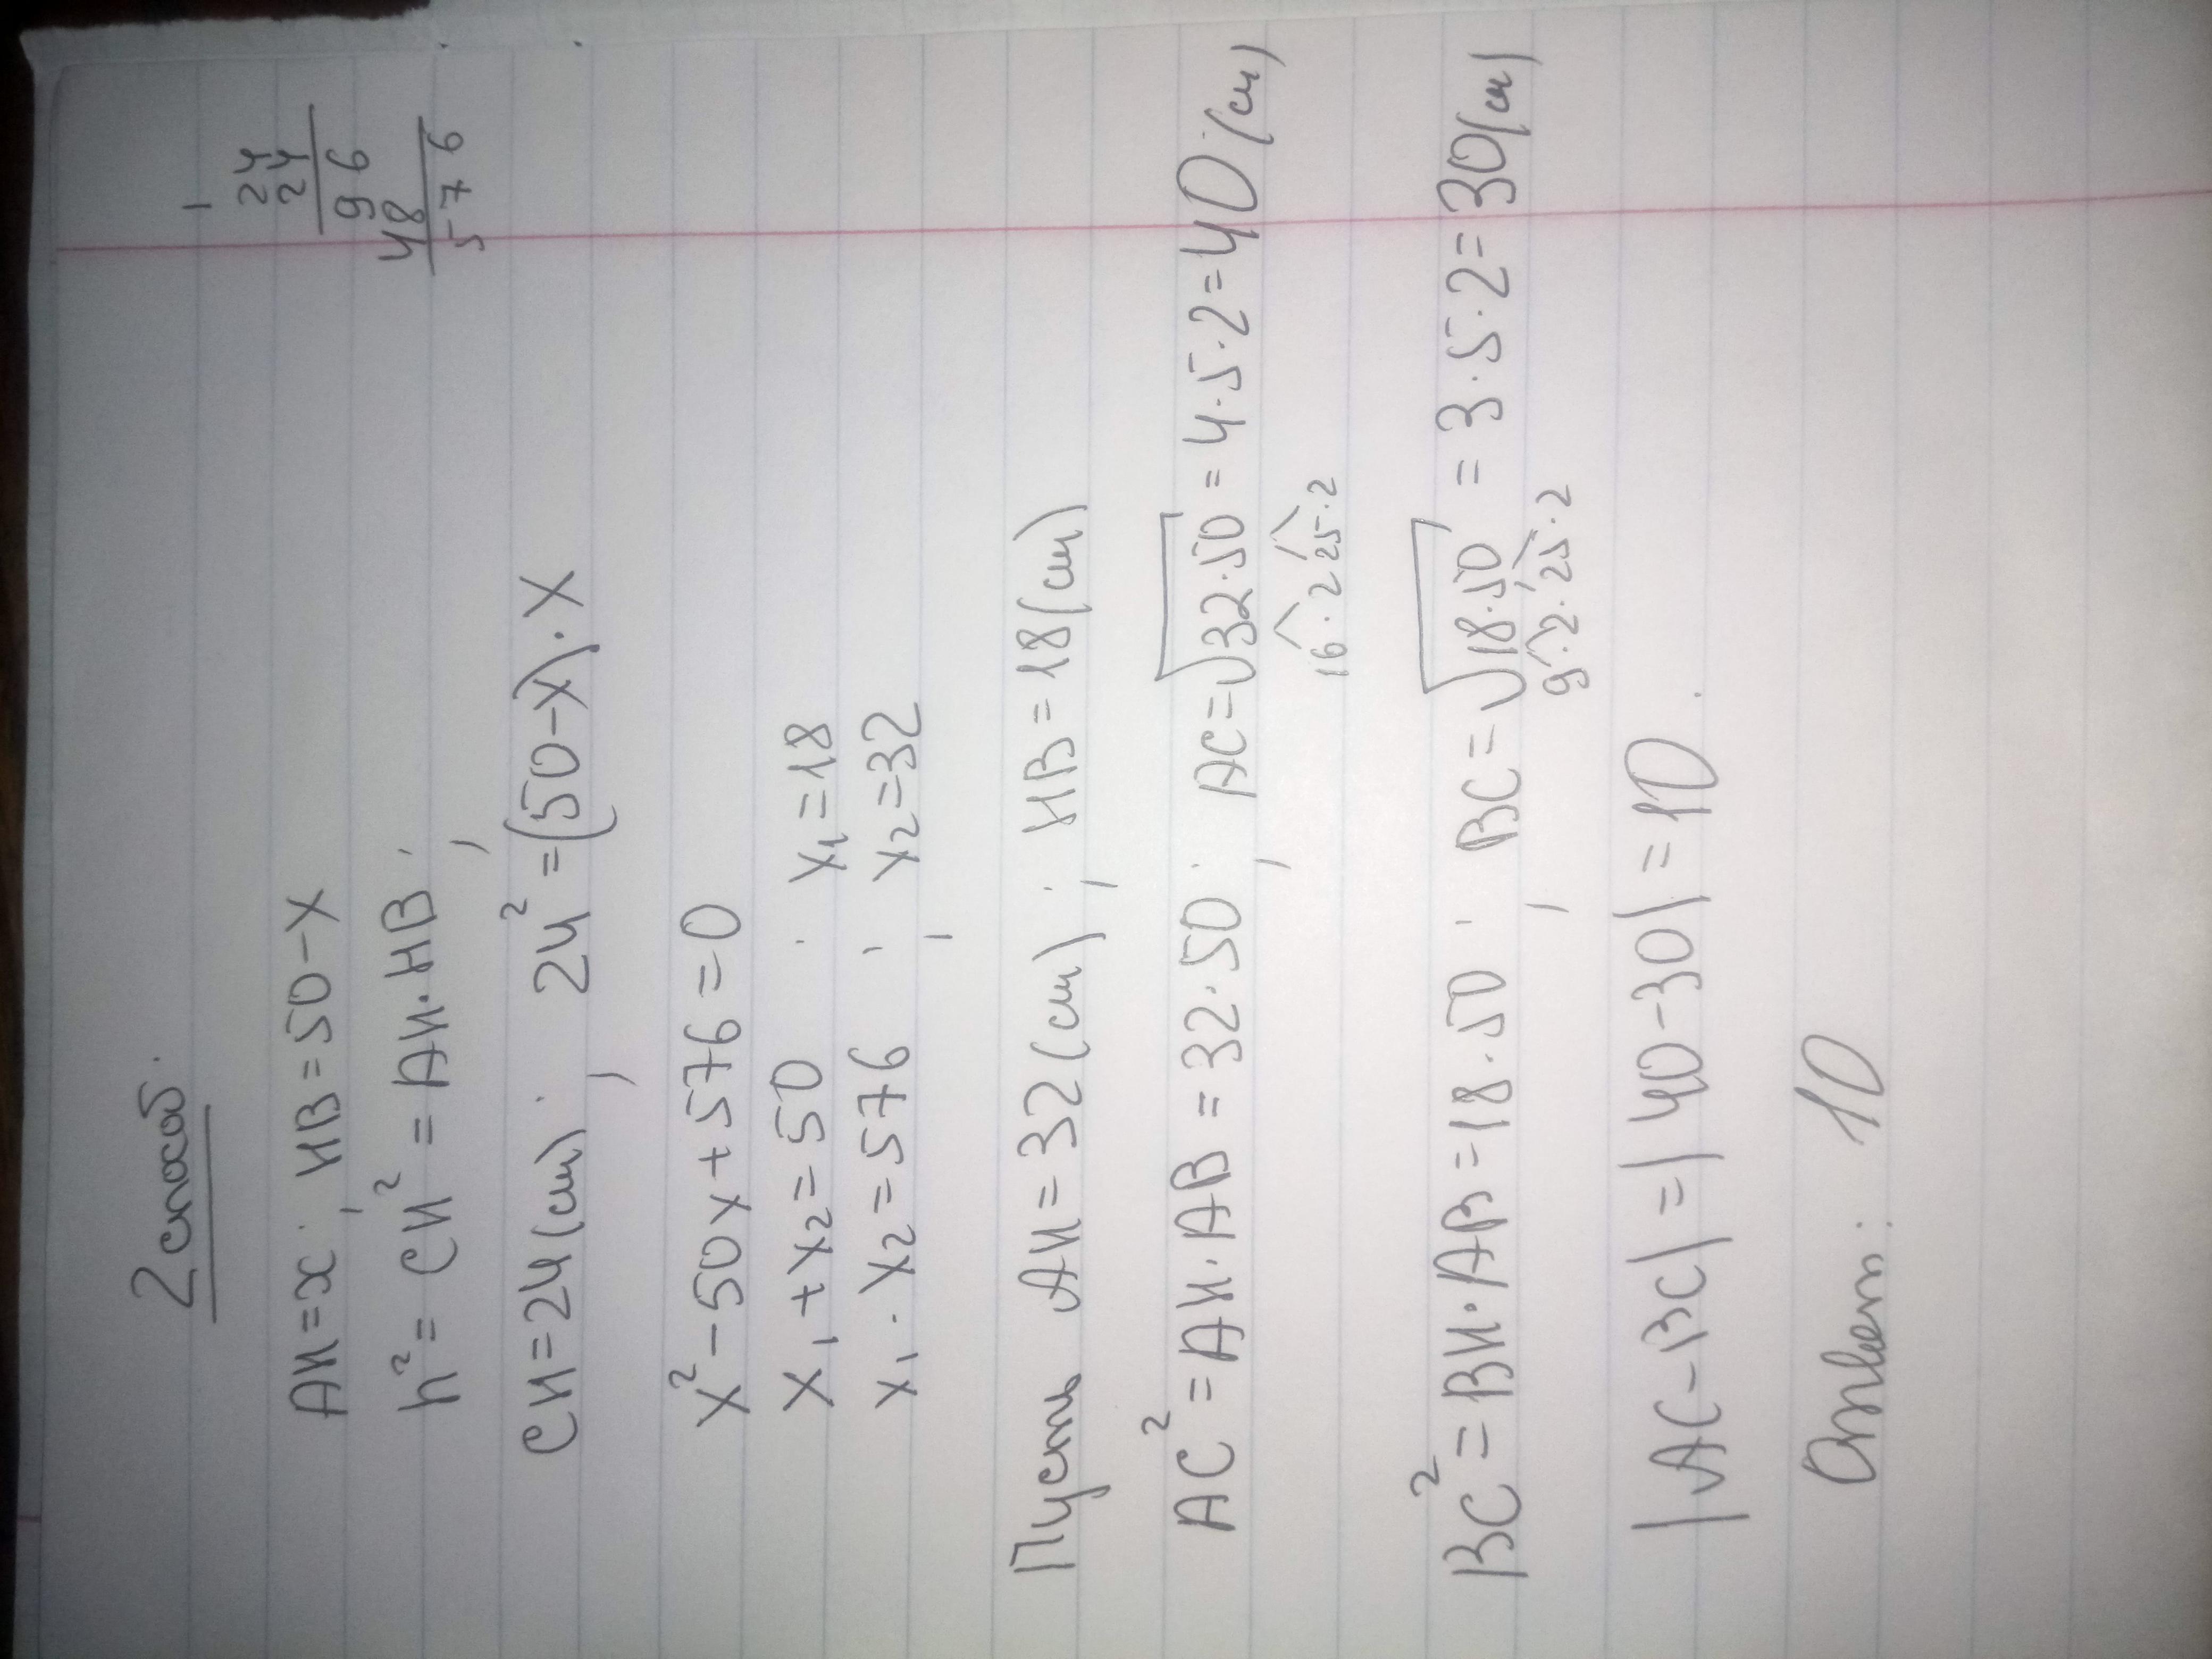 2 способ.
1
24
24
96
48
576
AH = x; HB = 50 - x
h² = CH² = AH · HB;
CH = 24 (см); 24² = (50 - x) · x
x² - 50x + 576 = 0
x₁ + x₂ = 50; x₁ = 18
x₁ · x₂ = 576; x₂ = 32
Пусть AH = 32 (см); HB = 18 (см)
AC² = AH · AB = 32 · 50; AC = √32·50 = 4·5·2 = 40 (см)
16·2 25·2
BC² = BH · AB = 18 · 50; BC = √18·50 = 3·5·2 = 30 (см)
9·2·25·2
|AC - BC| = |40 - 30| = 10.
Ответ: 10